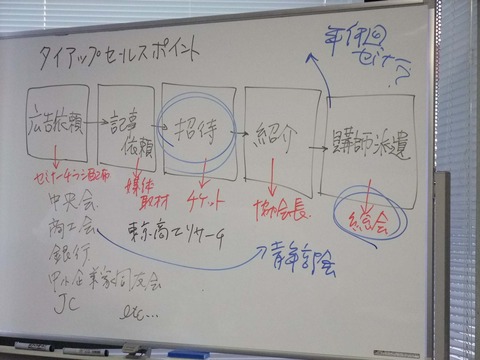 タイアップセールスポイント
年何回
セミナー?
広告依頼
記事
依頼
招待
紹介
講師派遣
セミナーチラシ配布
媒体
取材
チケット
協会長
総会
中央会
商工会
銀行
中小企業家同友会
JC
東京商工リサーチ
etc...
青年部会